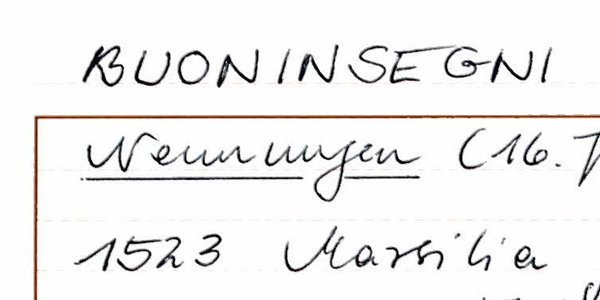 BUONINSEGNI
Nennungen (16.
1523 Marsilia